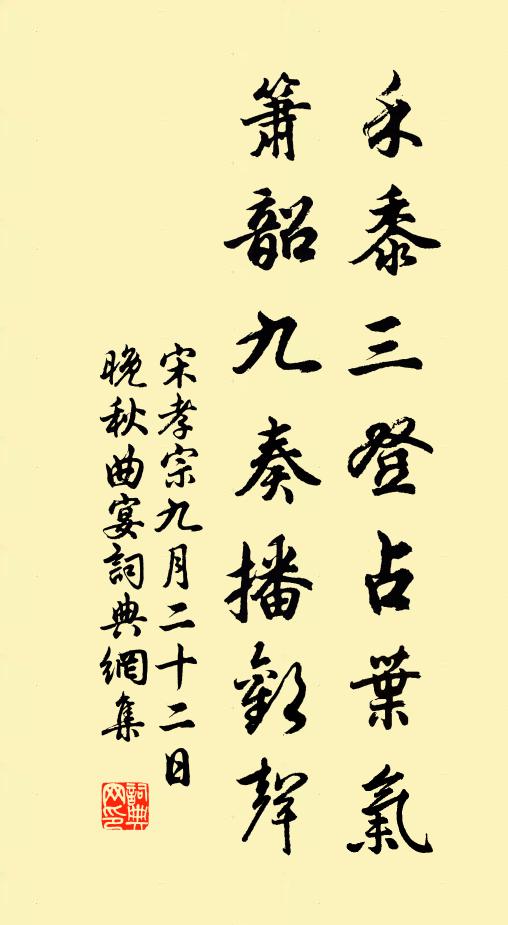 禾黍三登占葉氣
簫韶九奏播歡聲
宋孝宗九月二十二日
晚秋曲宴詞典網集
詞典
网印